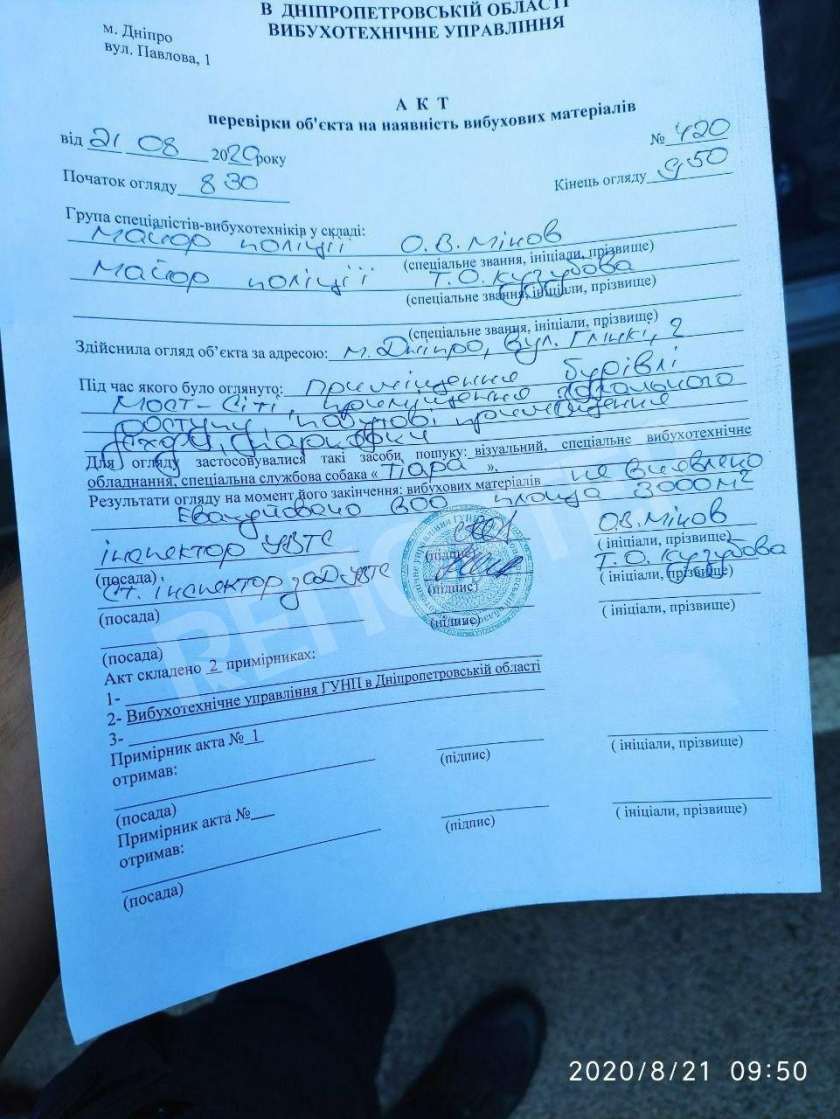 В ДНІПРОПЕТРОВСЬКІЙ ОБЛАСТІ
ВИБУХОТЕХНІЧНЕ УПРАВЛІННЯ
м. Дніпро
вул. Павлова, 1
А К Т
перевірки об'єкта на наявність вибухових матеріалів
від 21 08 2020 року № 420
Початок огляду 8 30 Кінець огляду 9 50
Група спеціалістів-вибухотехніків у складі:
майор поліції О.В. Мінов
(спеціальне звання, ініціали, прізвище)
майор поліції Т.О. Кузубова
(спеціальне звання, ініціали, прізвище)
(спеціальне звання, ініціали, прізвище)
Здійснила огляд об'єкта за адресою: м. Дніпро, вул. Глінкі, 2
Під час якого було оглянуто: приміщення будівлі
Мост-Сіті, приміщення загального
доступу, побутові приміщення
парковки
Для огляду застосовувалися такі засоби пошуку: візуальний, спеціальне вибухотехнічне
обладнання, спеціальна службова собака « Тіара ».
Результати огляду на момент його закінчення: вибухових матеріалів не виявлено
Евакуйовано 300 площа 3000 м2
інспектор УВТС О.В. Мінов
(посада) (підпис) ( ініціали, прізвище)
ст. інспектор УВТС Т.О. Кузубова
(посада) (підпис) ( ініціали, прізвище)
(посада) (підпис) ( ініціали, прізвище)
Акт складено 2 примірниках:
1-
2- Вибухотехнічне управління ГУНП в Дніпропетровській області
3-
Примірник акта № 1
отримав:
(посада) (підпис) ( ініціали, прізвище)
Примірник акта №
отримав:
(посада) (підпис) ( ініціали, прізвище)
2020/8/21 09:50